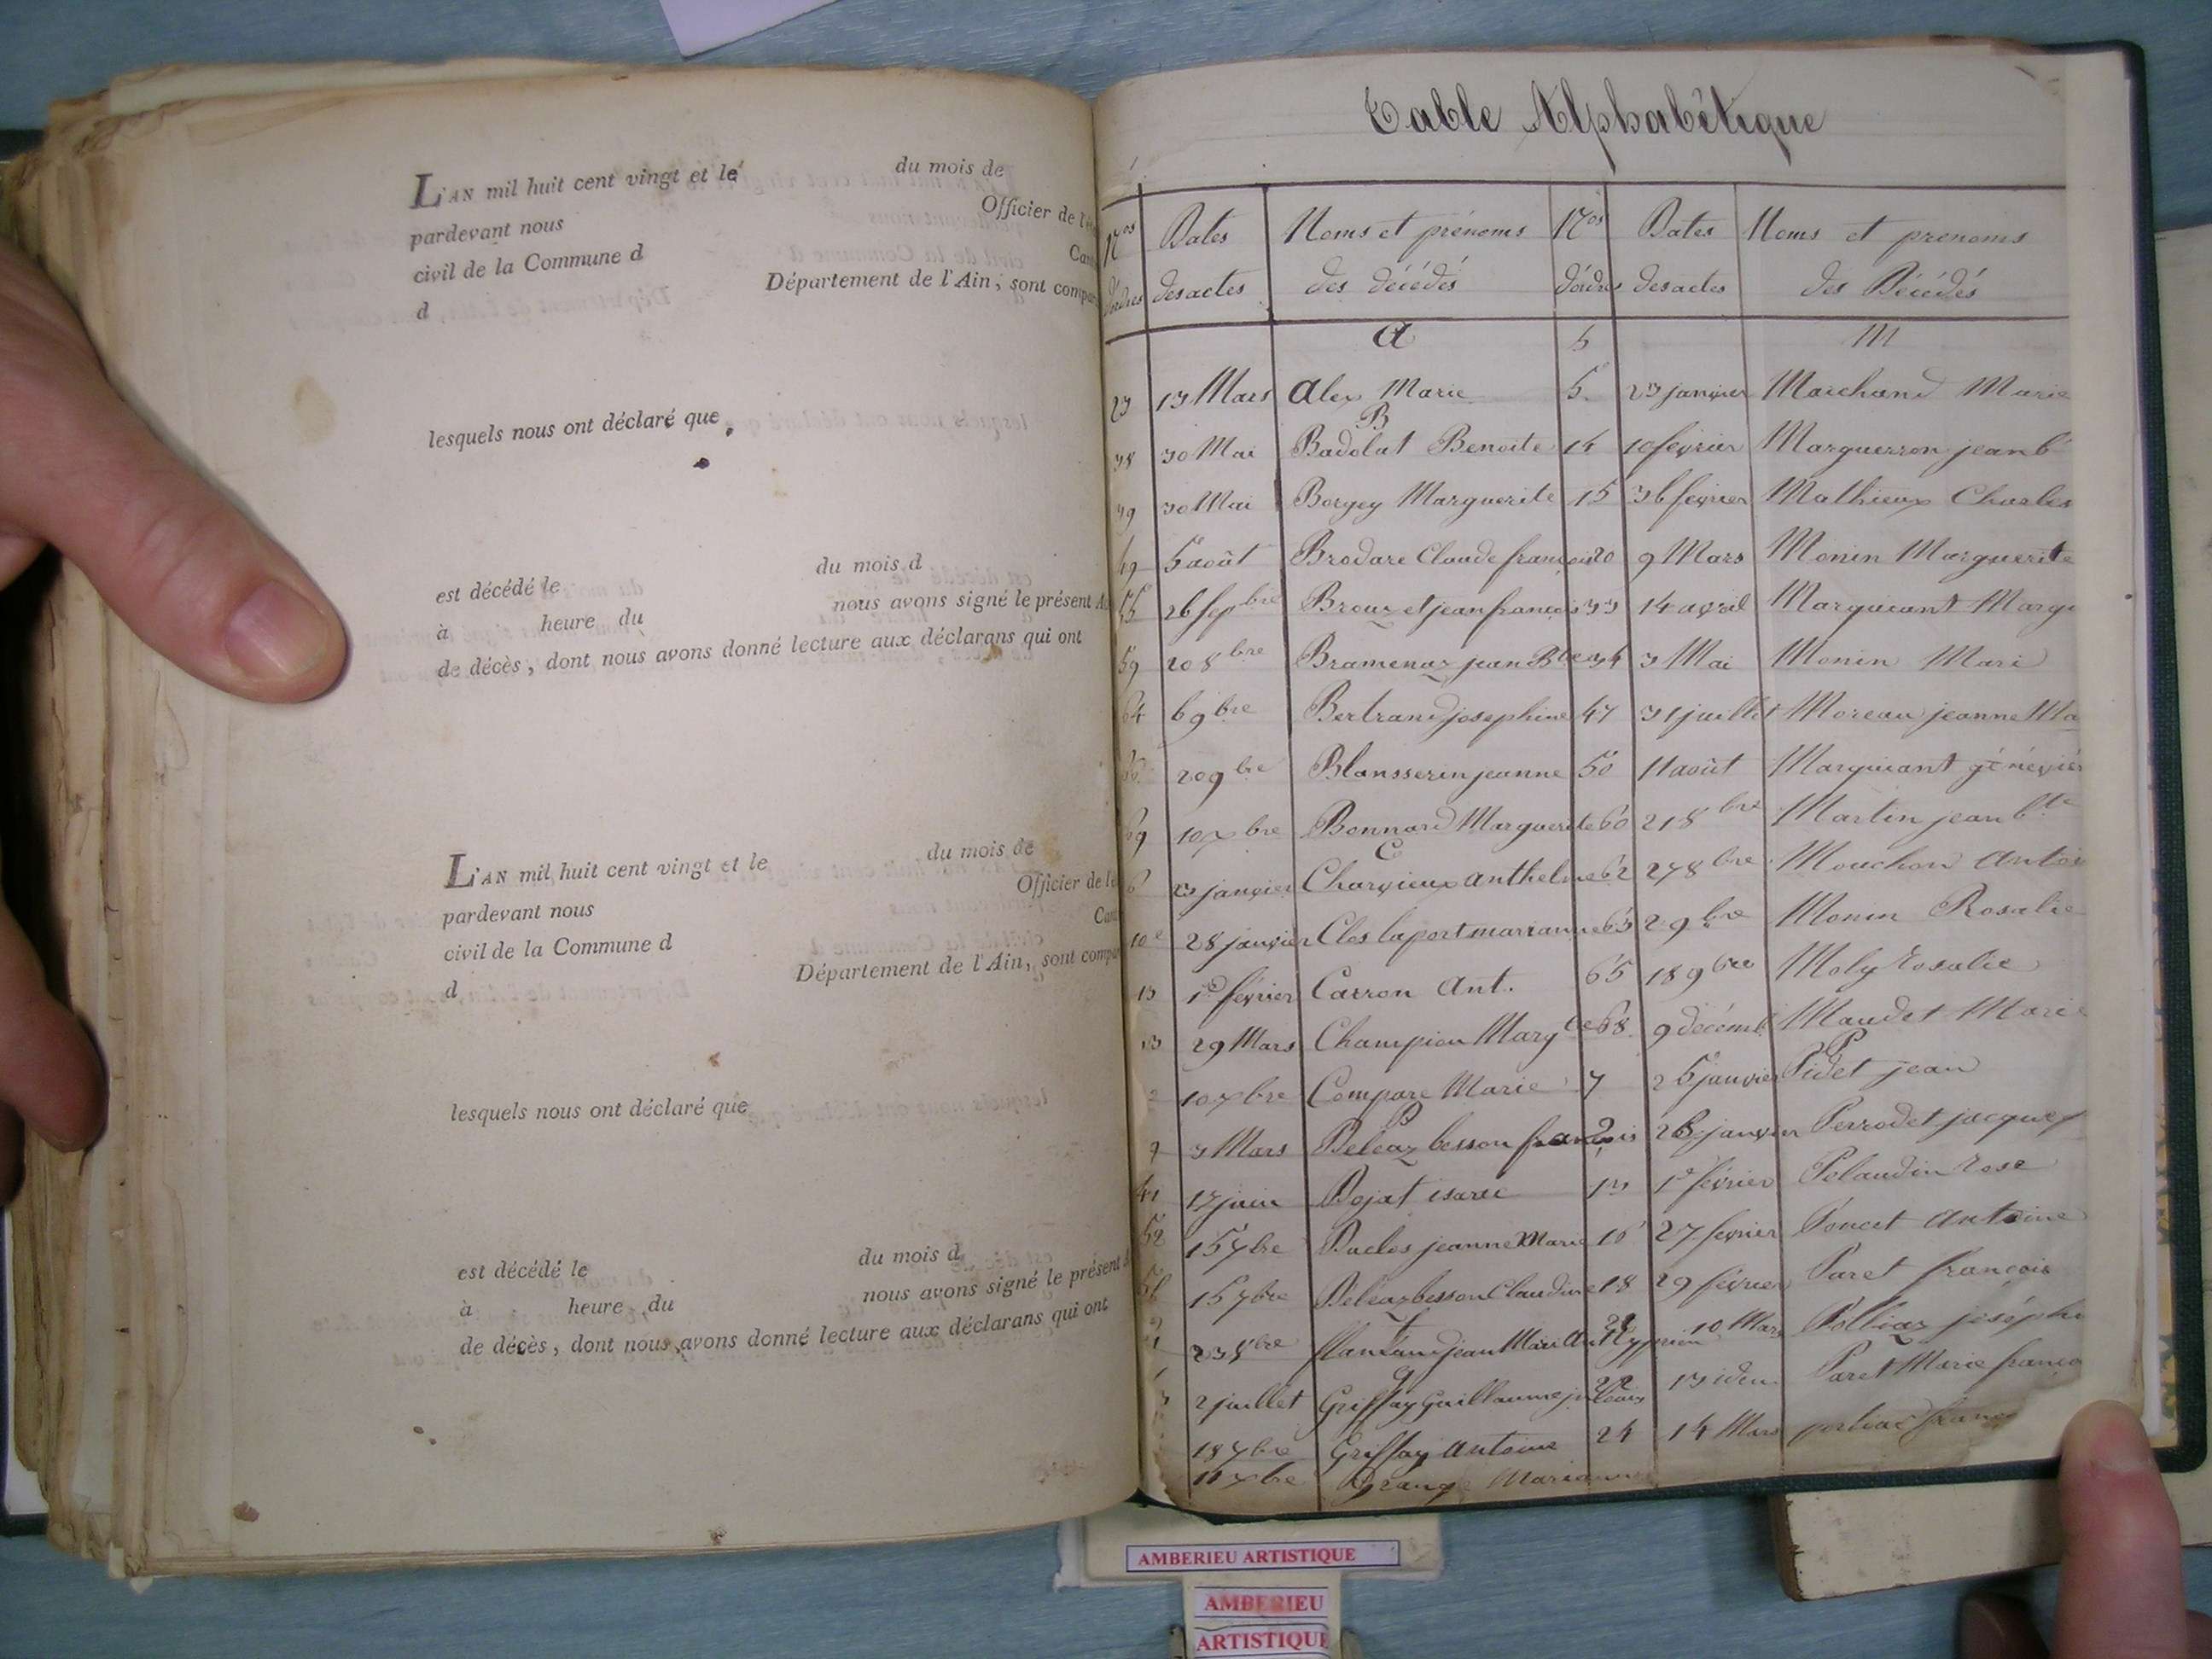 L'AN mil huit cent vingt et le du mois de
pardevant nous Officier de l'é
civil de la Commune d Can
d Département de l'Ain, sont compar
lesquels nous ont déclaré que
est décédé le du mois d
à heure du nous avons signé le présent A
de décès, dont nous avons donné lecture aux déclarans qui ont
L'AN mil huit cent vingt et le du mois de
pardevant nous Officier de l'é
civil de la Commune d Can
d Département de l'Ain, sont compar
lesquels nous ont déclaré que
est décédé le du mois d
à heure du nous avons signé le présent
de décès, dont nous avons donné lecture aux déclarans qui ont
Table Alphabétique
Nos Dates Noms et prénoms Nos Dates Noms et prenoms
d'ordres des actes des décédés d'ordres des actes des Décédés
A 5 M
23 13 Mars Alex Marie 5. 23 janvier Marchand Marie
B
38 30 Mai Badolat Benoite 14 10 fevrier Marguerron jean bte
39 30 Mai Borgey Marguerite 15 36 fevrier Mathieux Charles
49 5 août Brodare Claude françois 20 9 Mars Monin Marguerite
55 26 sepbre Brouzet jean francois 33 14 avril Marguiant Margu
59 20 8bre Bramenaz jean Bte 34 3 Mai Monin Mari
64 6 9bre Bertrand josephine 47 31 juillet Moreau jeanne Ma
66 20 9bre Blansserin jeanne 50 11 août Marguiant géneviév
69 10 xbre Bonnard Marguerite 60 21 8bre Martin jean bte
C
6 23 janvier Charvieux anthelme 62 27 8bre Mouchon Antoi
10 28 janvier Clos laport marianne 63 2 9bre Monin Rosalie
13 1er février Carron Ant. 65 18 9bre Moly rosalie
29 Mars Champion Margte 68 9 décemb Maudet Marie
P
10 xbre Compare Marie 7 25 janvier Pidet jean
D
3 Mars Deleaz besson francois 26 janvier Perrodet jacques
41 17 juin Dojat isaac 1er février Polaudin rose
52 15 7bre Duclos jeanne Marie 16 27 fevrier Poncet Antoine
56 15 7bre Deleaz besson Claudine 18 29 février Paret francois
23 8bre jean Marie 21 10 Mars Polliaz joséphi
G
2 juillet Griffay Guillaume 22 13 idem Paret Marie franço
18 7bre Griffay Antoine 24 14 Mars
11 xbre Grange Marianne
AMBERIEU ARTISTIQUE
AMBERIEU
ARTISTIQUE